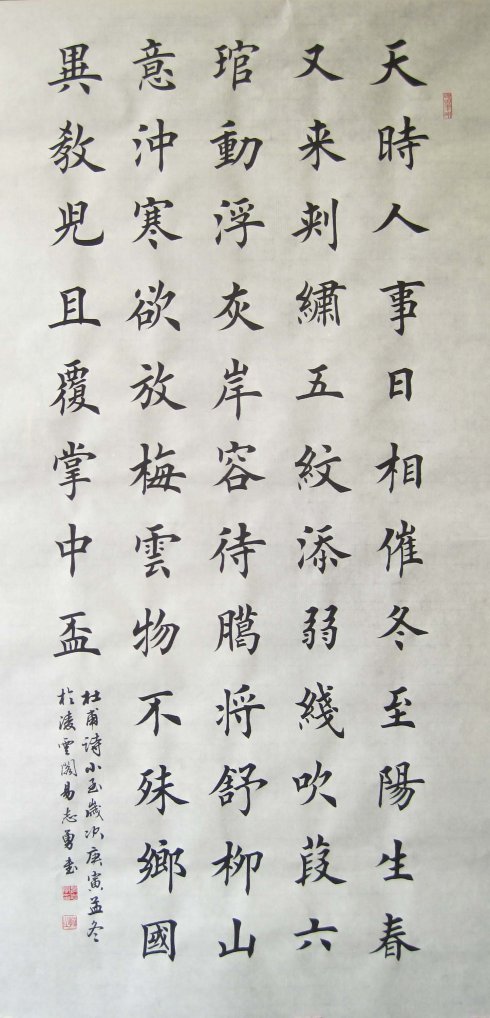 天時人事日相催冬至陽生春
又来刺繡五紋添弱綫吹葭六
琯動浮灰岸容待臈将舒柳山
意沖寒欲放梅雲物不殊鄉國
異教児且覆掌中盃
杜甫詩小至歲次庚寅孟冬
於淩雲閣易志勇書